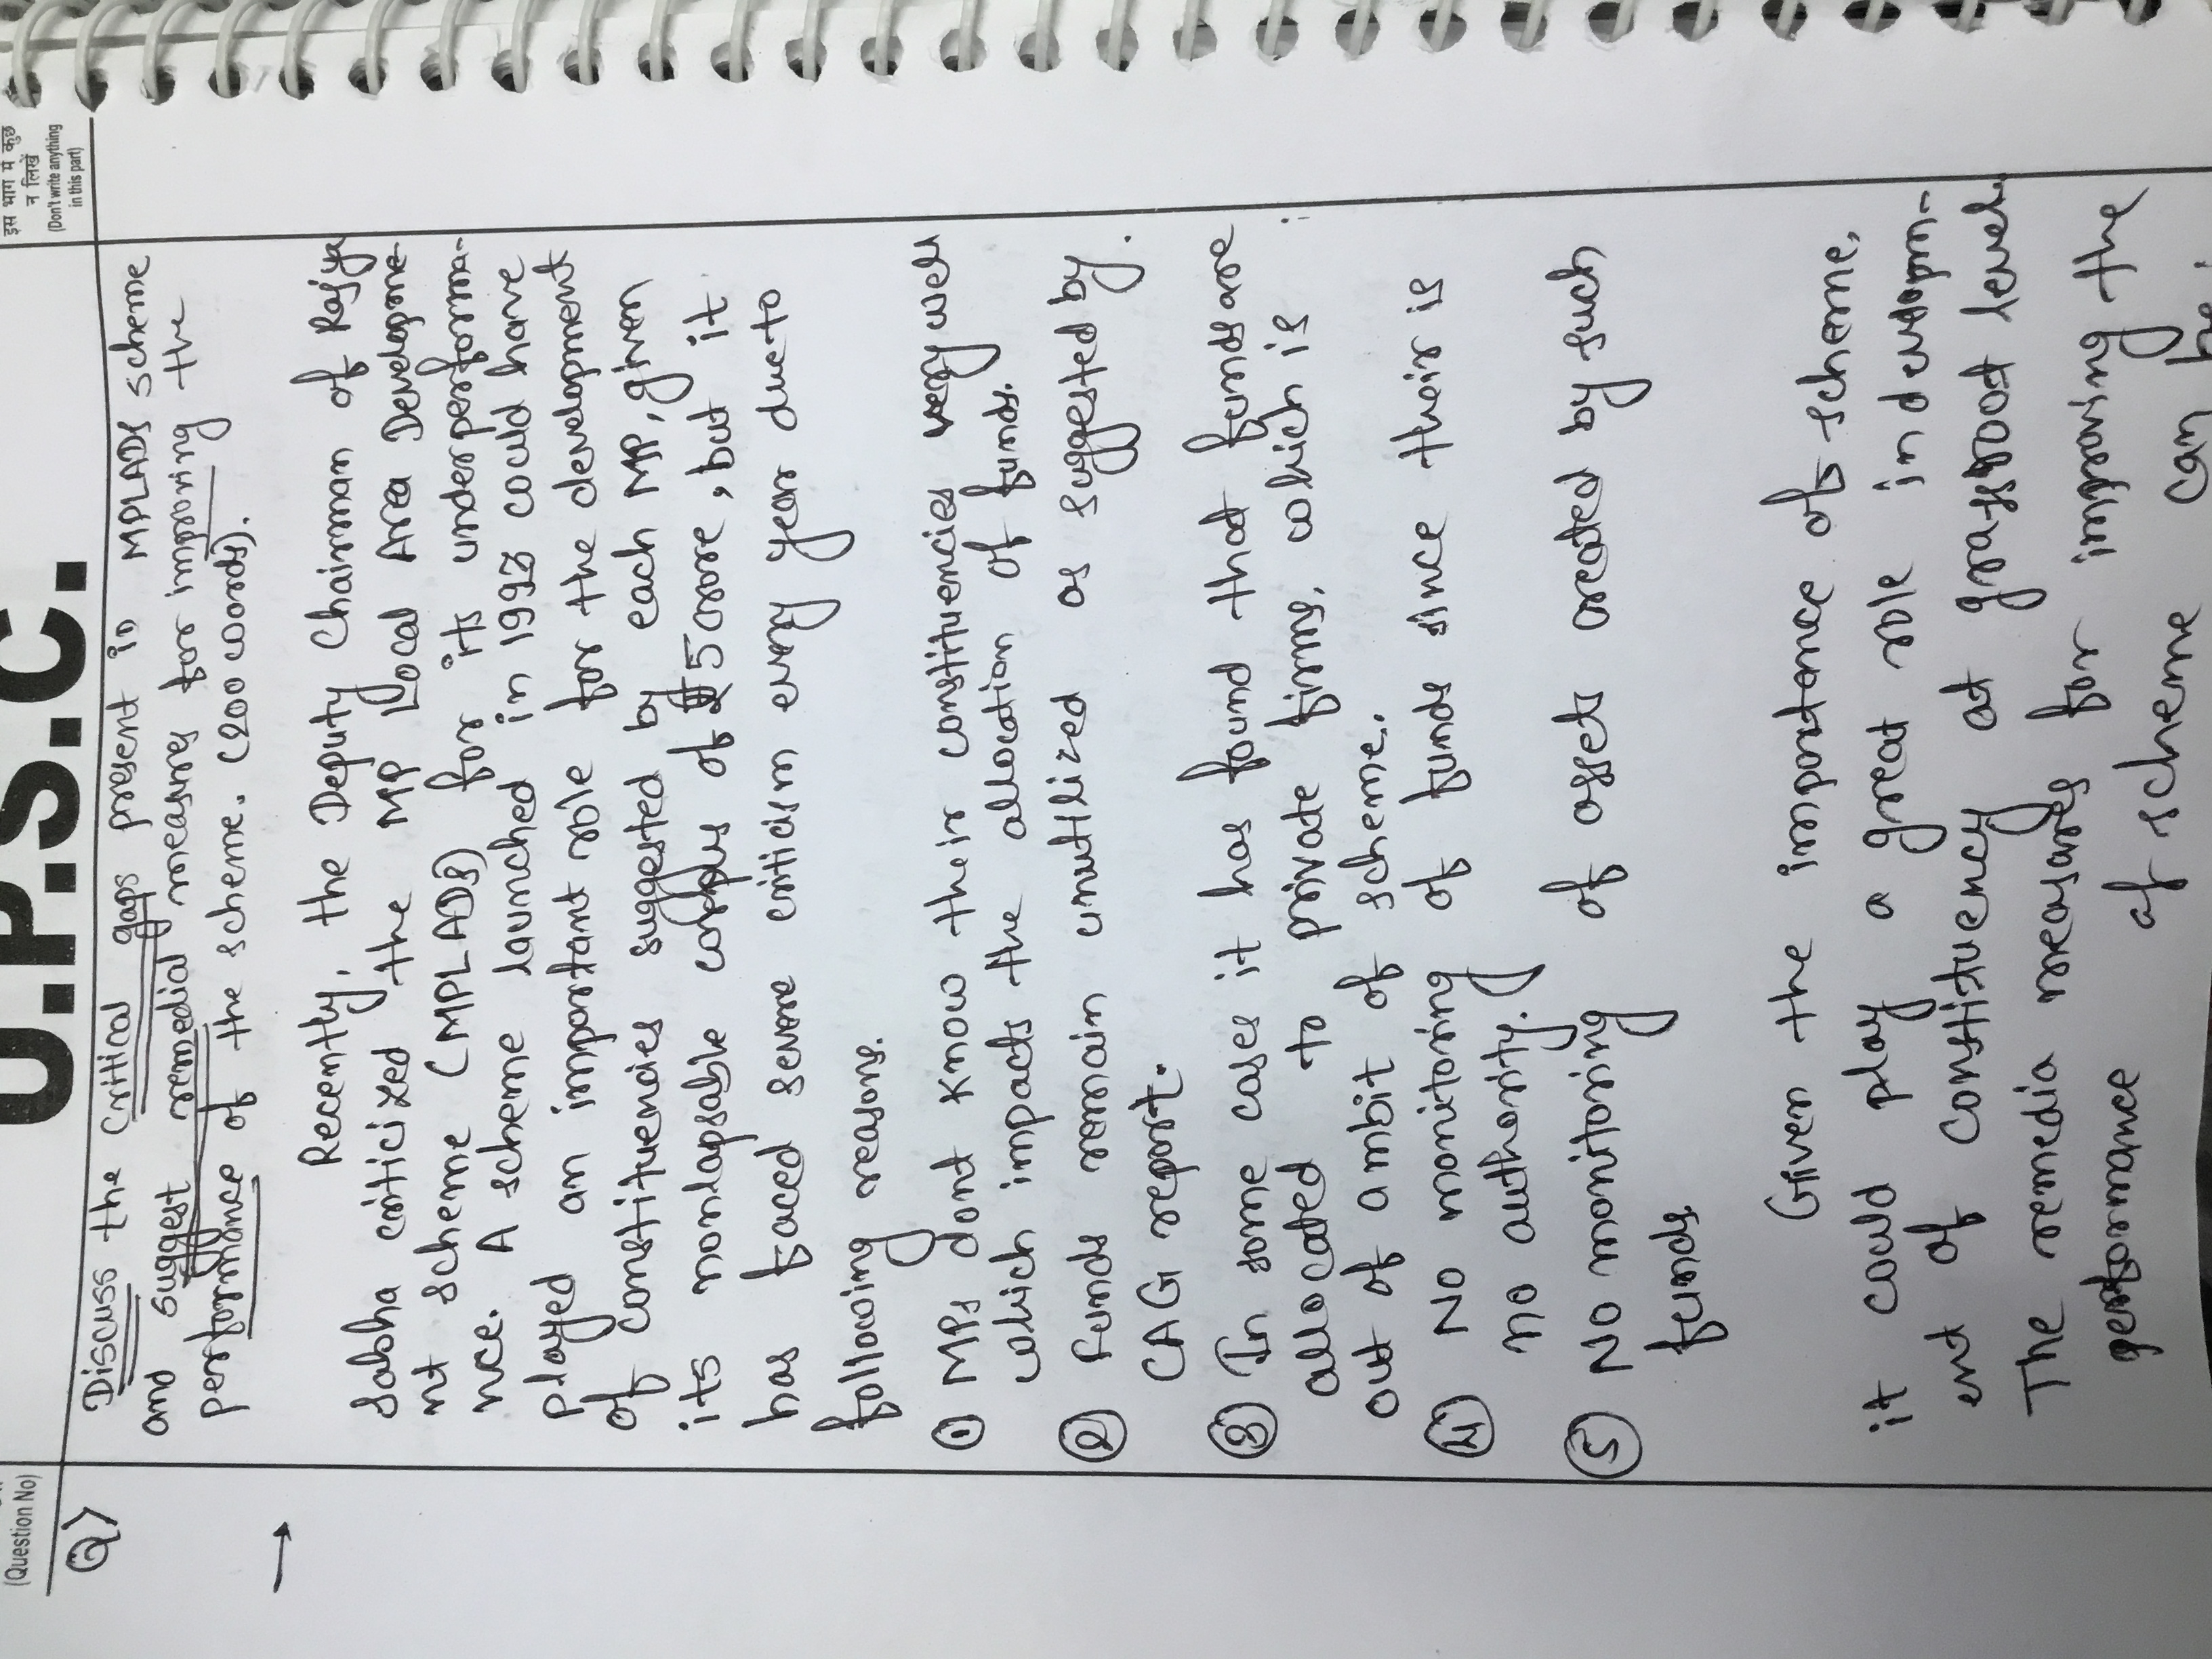 U.P.S.C.
(Question No)
इस भाग में कुछ
न लिखें
(Don't write anything
in this part)
Q>
Discuss the critical gaps present in MPLADS scheme
and suggest remedial measures for improving the
performance of the scheme. (200 words).
→
Recently, the Deputy Chairman of Rajya
Sabha criticized the MP Local Area Developme-
nt scheme (MPLADS) for its underperforma-
nce. A scheme launched in 1993 could have
played an important role for the development
of constituencies suggested by each MP, given
its nonlapsable corpus of 5 crore, but it
has faced severe criticism every year due to
following reasons.
① MPs dont know their constituencies very well
which impacts the allocation of funds.
② Funds remain unutilized as suggested by.
CAG report.
③ In some cases it has found that funds are
allocated to private firms, which is
out of ambit of scheme.
④ No monitoring of funds since their is
no authority.
⑤ No monitoring of assets created by such
funds.
Given the importance of scheme,
it could play a great role in developm-
ent of constituency at grassroot level.
The remedia measures for improving the
performance of scheme can be.